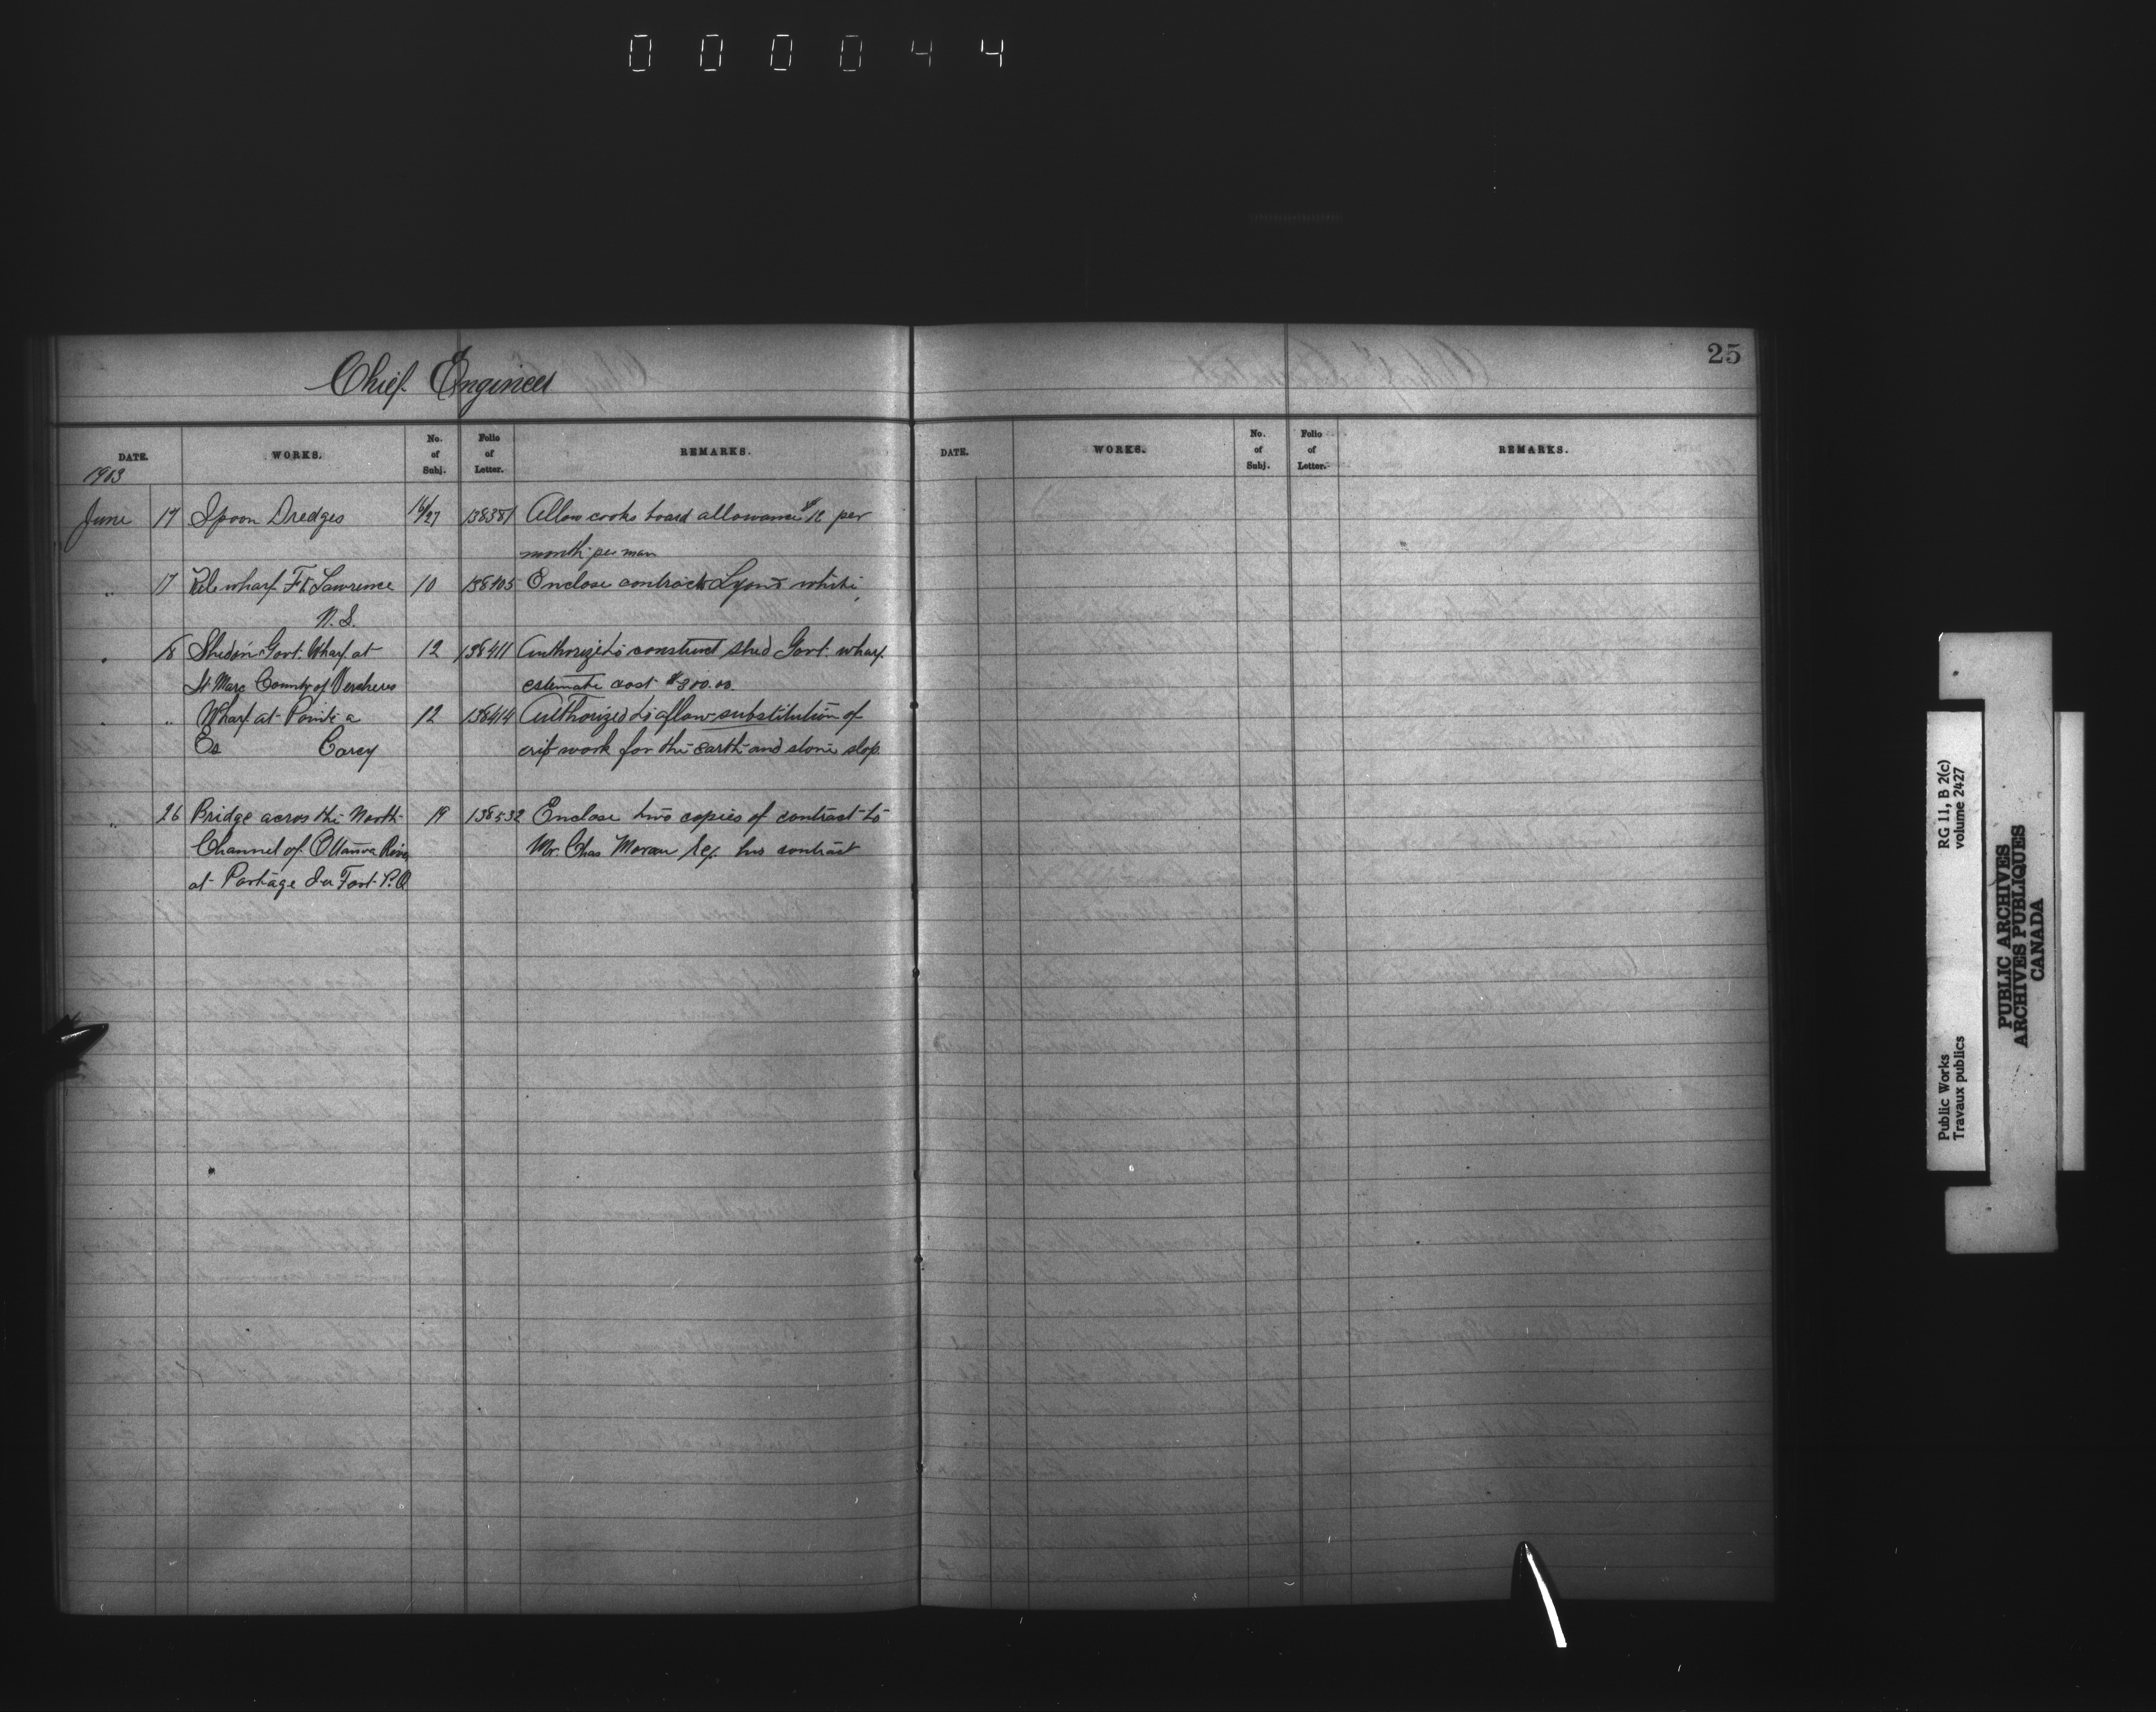 000044
25
Chief Engineer
DATE. WORKS. No. of Subj. Folio of Letter. REMARKS.
DATE. WORKS. No. of Subj. Folio of Letter. REMARKS.
1903
June 17 Spoon Dredges 16/27 138381 Allow cooks board allowance $12 per
month per man
" 17 wharf Ft Lawrence 10 138405 Enclose contract Lyons & White
N.S.
" 18 Shed on Govt. Wharf at 12 138411 Authorized to construct shed Govt. wharf
St Marc County of Vercheres estimate cost $300.00.
" " Wharf at Pointe a 12 138414 Authorized to allow substitution of
Carcy crib work for the earth and stone slop.
" 26 Bridge across the North 19 138532 Enclose two copies of contract to
Channel of Ottawa River Mr. Chas his contract
at Portage du Fort P.Q
Public Works
Travaux publics
RG 11, B 2(c)
volume 2427
PUBLIC ARCHIVES
ARCHIVES PUBLIQUES
CANADA